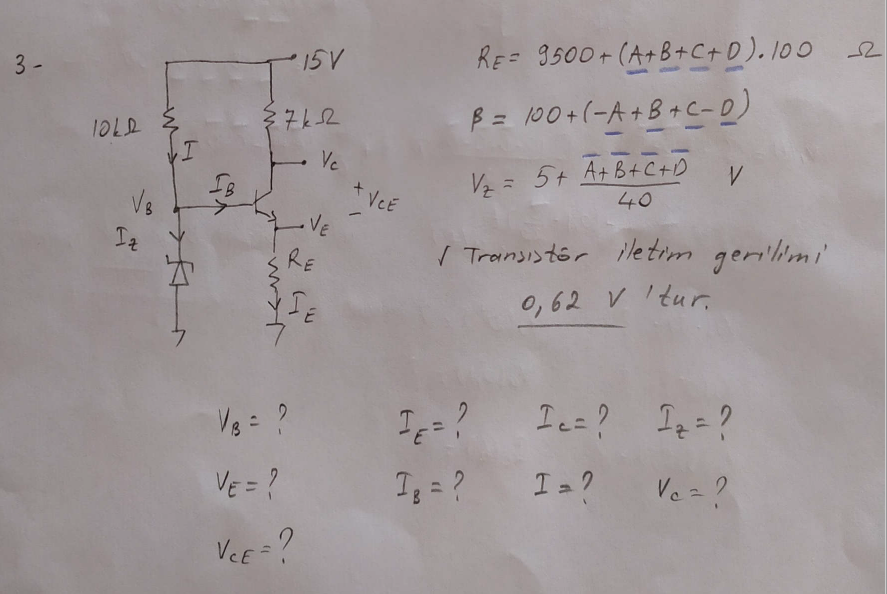 3-
15V
10kΩ
7kΩ
I
Vc
I_B
V_B
+
V_CE
-
V_E
I_z
R_E
I_E
R_E = 9500 + (A+B+C+D).100 Ω
β = 100 + (-A+B+C-D)
V_z = 5 + A+B+C+D / 40 V
√ Transistör iletim gerilimi
0,62 V 'tur.
V_B = ? I_E = ? I_c = ? I_z = ?
V_E = ? I_B = ? I = ? V_c = ?
V_CE = ?